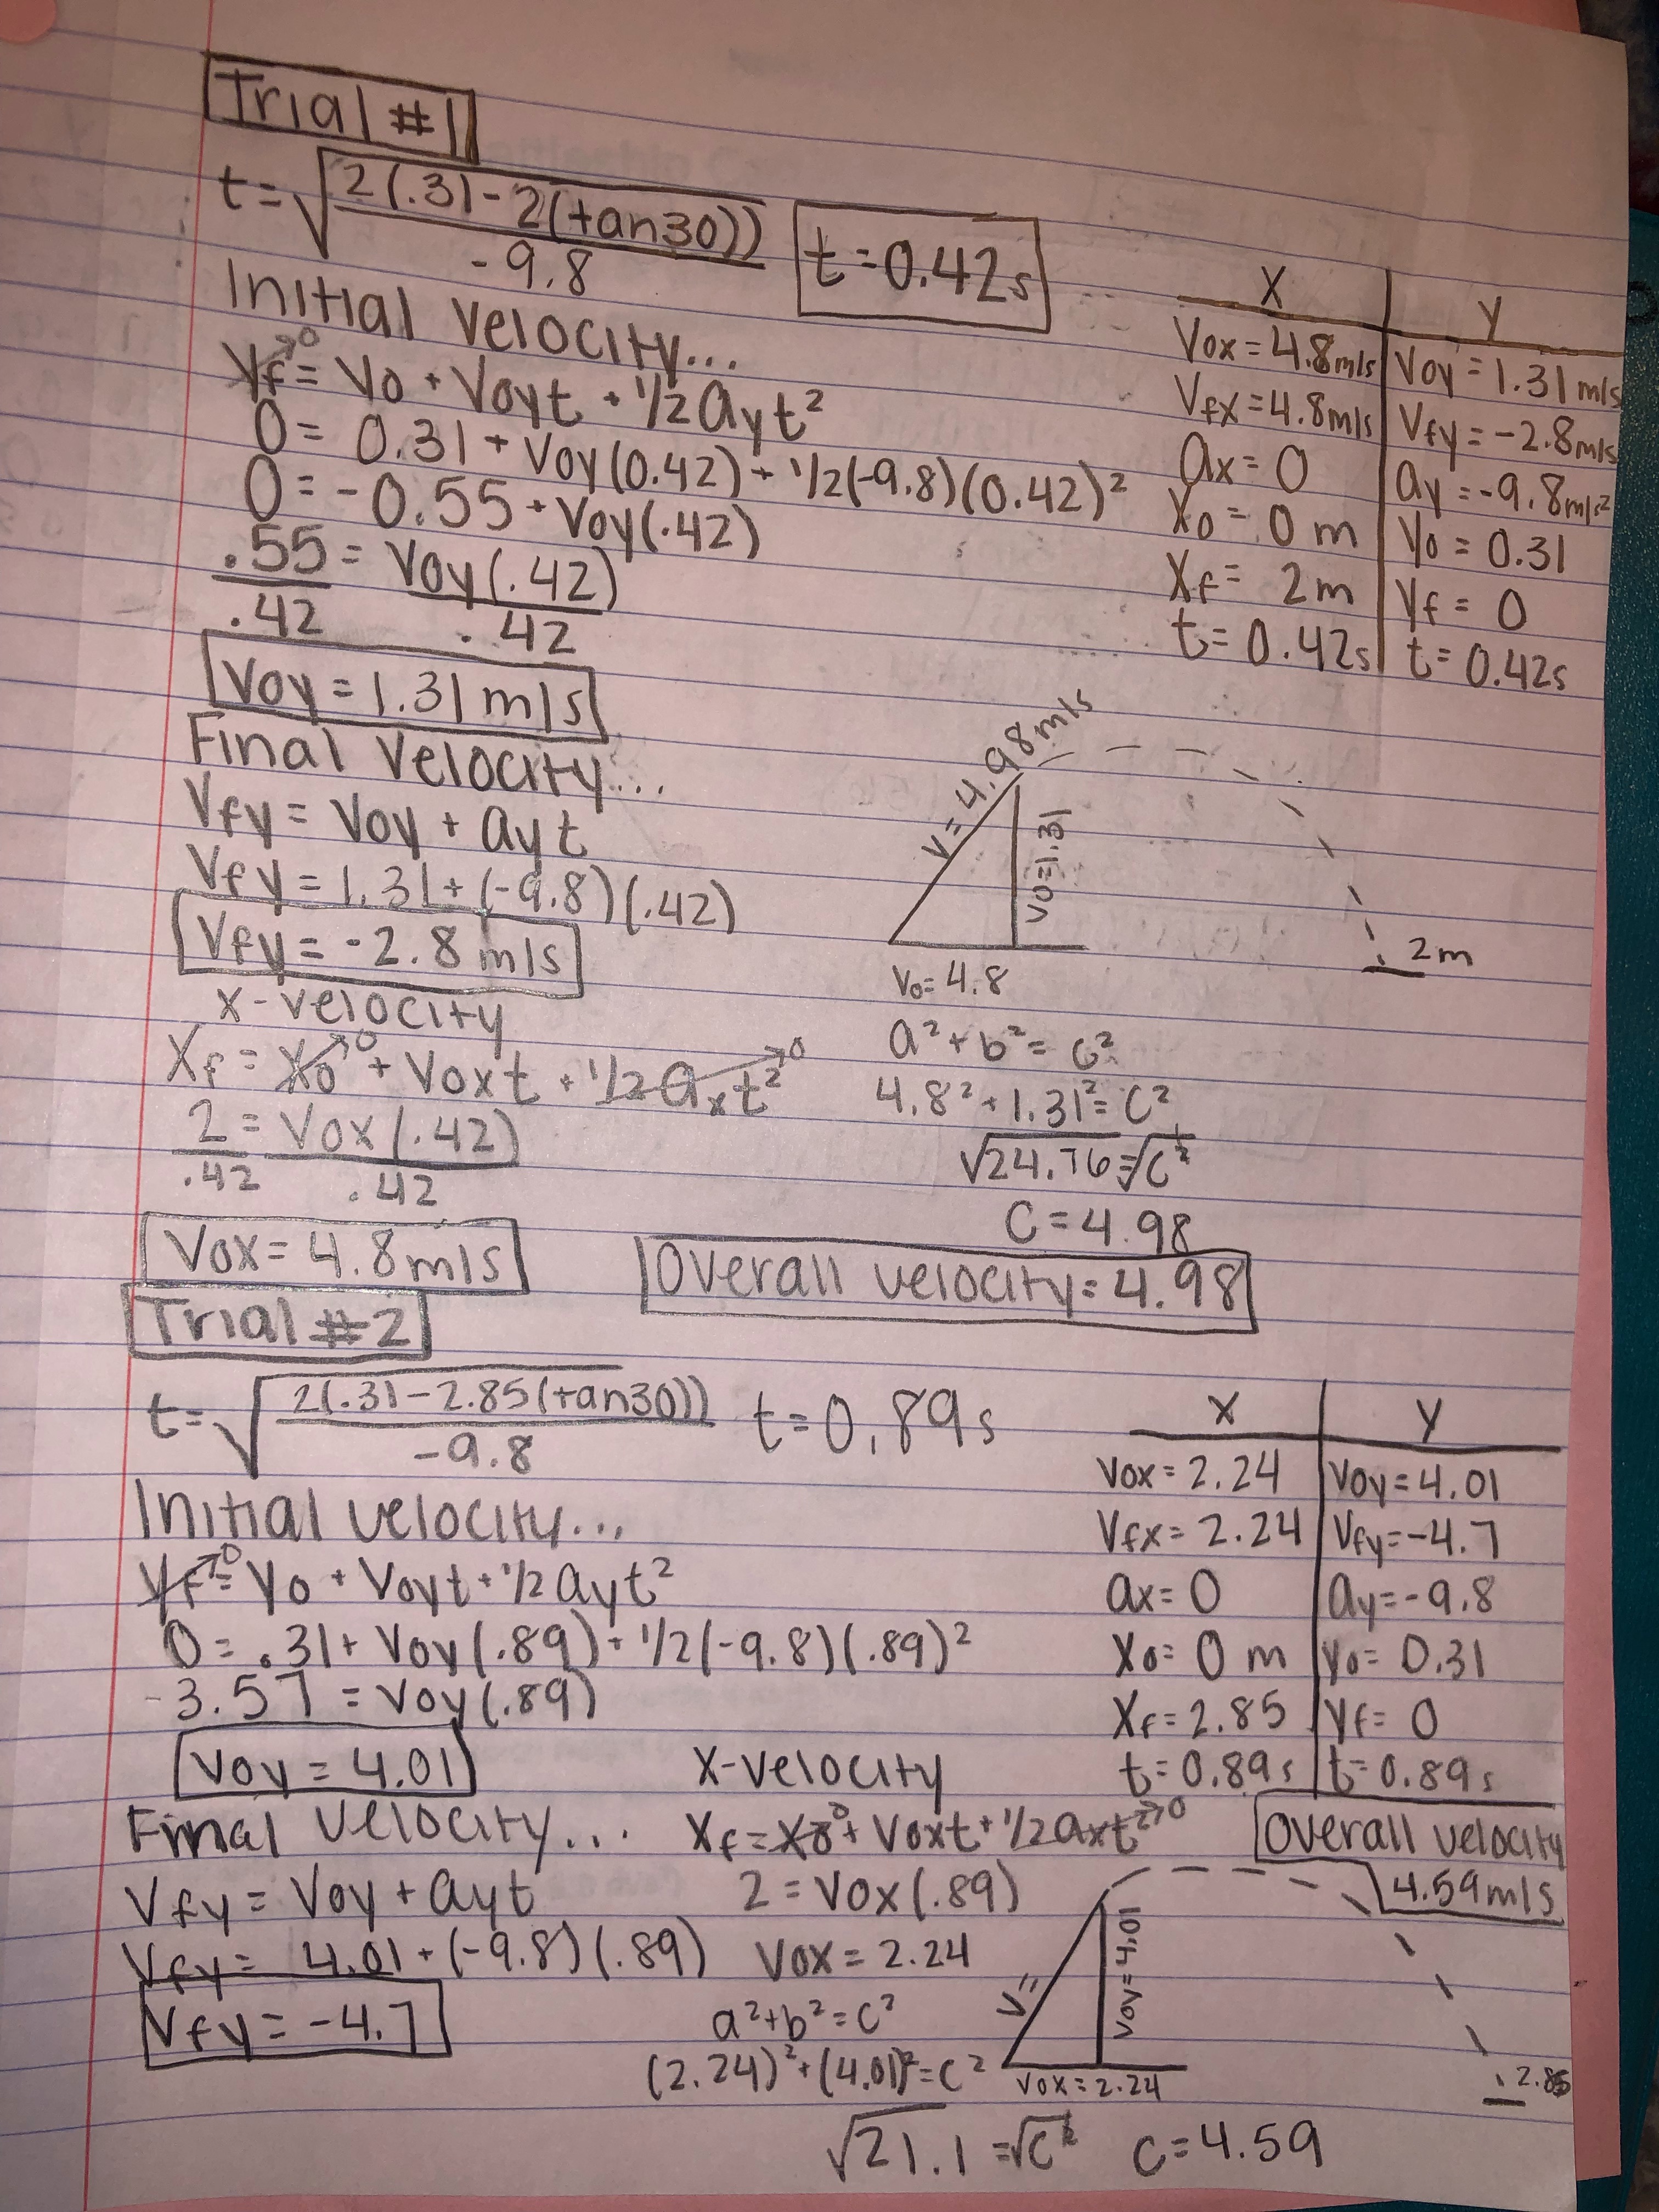 Trial #1
t = √ 2(.31-2(tan30)) t=0.42s
-9.8
Initial Velocity...
Yf = Yo + Voyt + 1/2ayt²
0 = 0.31 + Voy(0.42) + 1/2(-9.8)(0.42)²
0 = -0.55 + Voy(.42)
.55 = Voy(.42)
.42 .42
Voy = 1.31 m/s
Final Velocity...
Vfy = Voy + ayt
Vfy = 1.31 + (-9.8)(.42)
Vfy = -2.8 m/s
x-velocity
Xf = Xo + Voxt + 1/2axt²
2 = Vox(.42)
.42 .42
Vox = 4.8 m/s
X Y
Vox = 4.8m/s Voy = 1.31 m/s
Vfx = 4.8m/s Vfy = -2.8m/s
ax = 0 ay = -9.8m/s²
Xo = 0 m Yo = 0.31
Xf = 2m Yf = 0
t = 0.42s t = 0.42s
V= 4.98m/s
Vo=1.31
Vo=4.8
2m
a² + b² = c²
4.8² + 1.31² = c²
√24.76 = √c²
c = 4.98
Overall velocity = 4.98
Trial #2
t = √ 2(.31-2.85(tan30)) t=0.89s
-9.8
Initial velocity...
Yf = Yo + Voyt + 1/2ayt²
0 = .31 + Voy(.89) + 1/2(-9.8)(.89)²
-3.57 = Voy(.89)
Voy = 4.01
Final velocity...
Vfy = Voy + ayt
Vfy = 4.01 + (-9.8)(.89)
Vfy = -4.7
X-velocity
Xf = Xo + Voxt + 1/2axt²
2 = Vox(.89)
Vox = 2.24
a² + b² = c²
(2.24)² + (4.01)² = c²
√21.1 = √c² c = 4.59
X Y
Vox = 2.24 Voy = 4.01
Vfx = 2.24 Vfy = -4.7
ax = 0 ay = -9.8
Xo = 0 m Yo = 0.31
Xf = 2.85 Yf = 0
t = 0.89s t = 0.89s
Overall velocity
4.59m/s
V=
Vox = 2.24
2.85